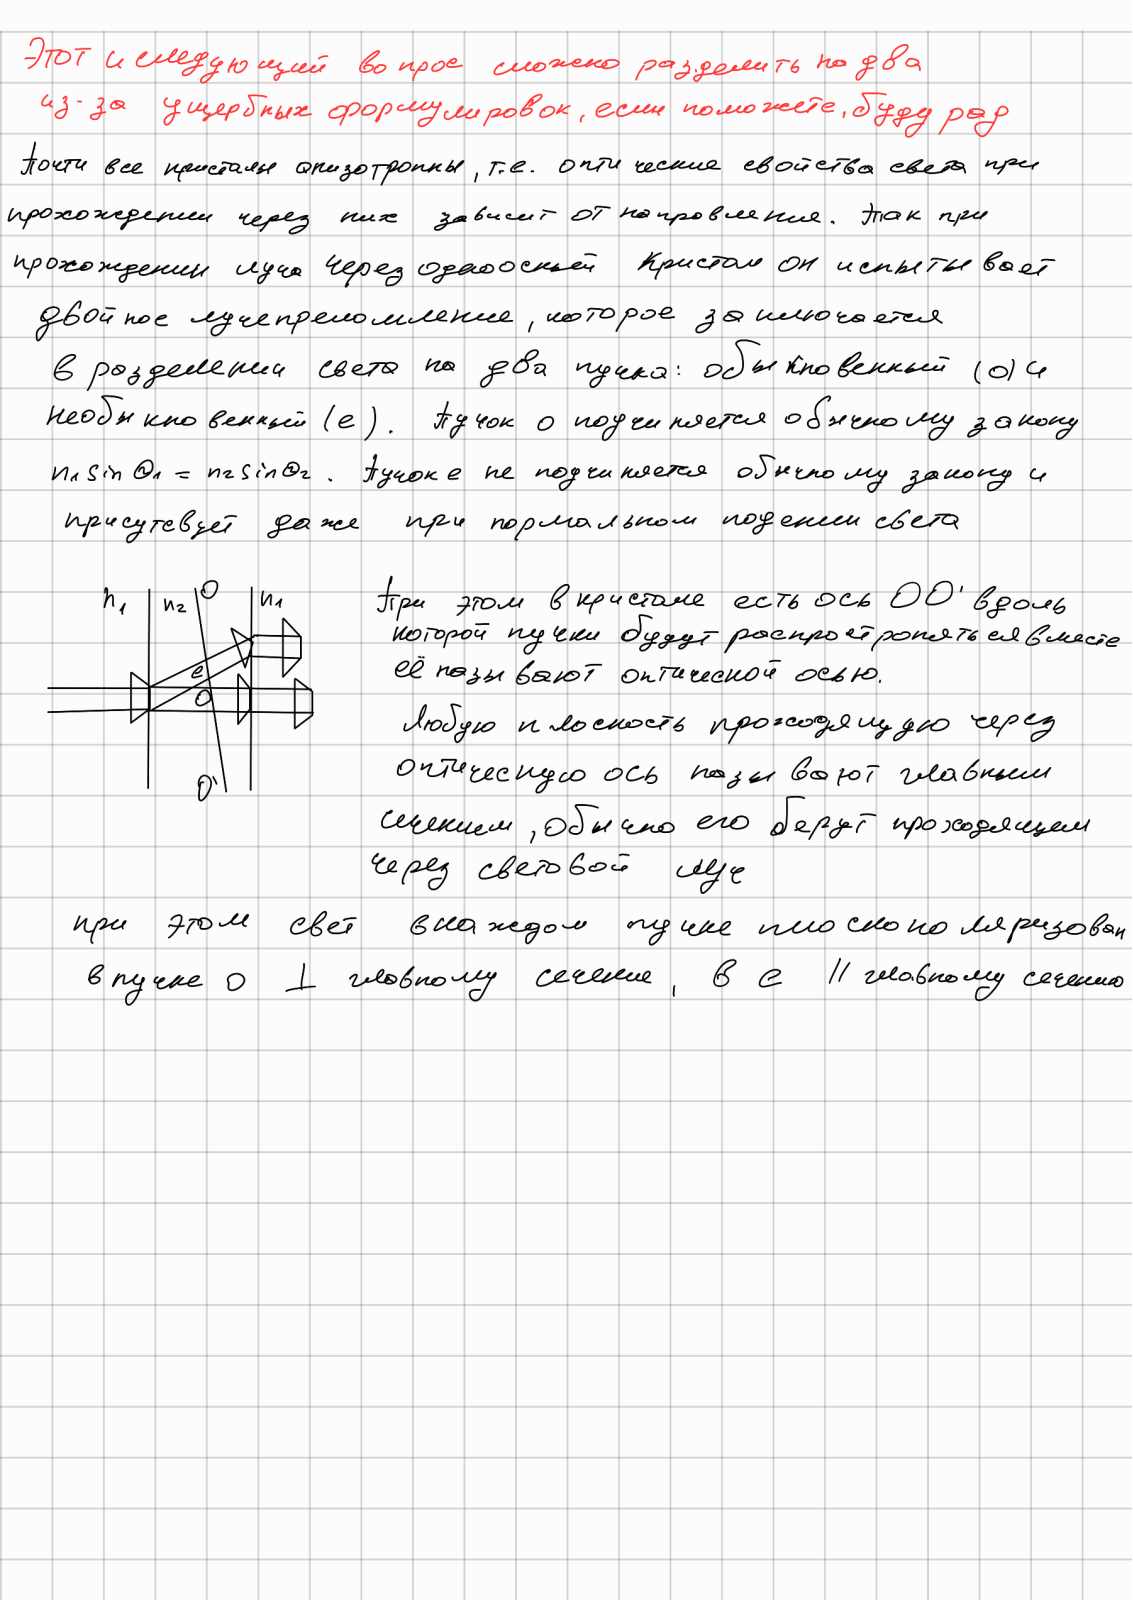 Этот и следующий вопрос можно разделить на два
из-за ущербных формулировок, если поможете, буду рад
Почти все кристалы анизотропны, т.е. оптические свойства света при
прохождении через них зависит от направления. Так при
прохождении луча через одноосный кристал он испытывает
двойное лучепреломление, которое заключается
в разделении света на два пучка: обыкновенный (о) и
необыкновенный (е). Пучок о подчиняется обычному закону
n₁ sin Θ₁ = n₂ sin Θ₂. Пучок е не подчиняется обычному закону и
присутсвует даже при нормальном падении света
n₁ n₂ O n₁
e
O
O'
При этом в кристале есть ось OO' вдоль
которой пучки будут распространяться вместе
её называют оптической осью.
Любую плоскость проходящую через
оптическую ось называют главным
сечением, обычно его берут проходящем
через световой луч
при этом свет в каждом пучке плоско поляризован
в пучке о ⊥ главному сечение, в е || главному сечению